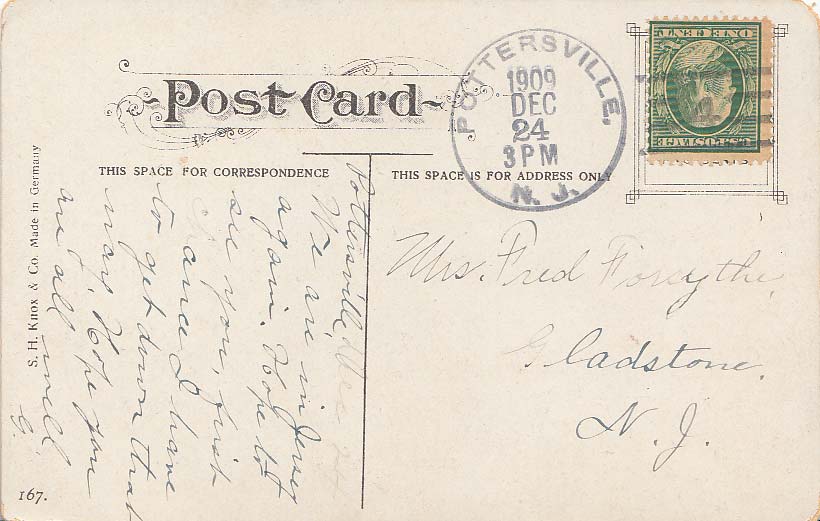 Post Card
THIS SPACE FOR CORRESPONDENCE
THIS SPACE IS FOR ADDRESS ONLY
POTTERSVILLE,
1909
DEC
24
3 PM
N. J.
U.S. POSTAGE
ONE CENT
S. H. Knox & Co. Made in Germany
Pottersville, Dec 24
We are in Jersey
again. Hope to
see you, first
chance I have
to get down that
way. Hope you
are all well
G.
Mrs. Fred Forsythe,
Gladstone.
N. J.
167.